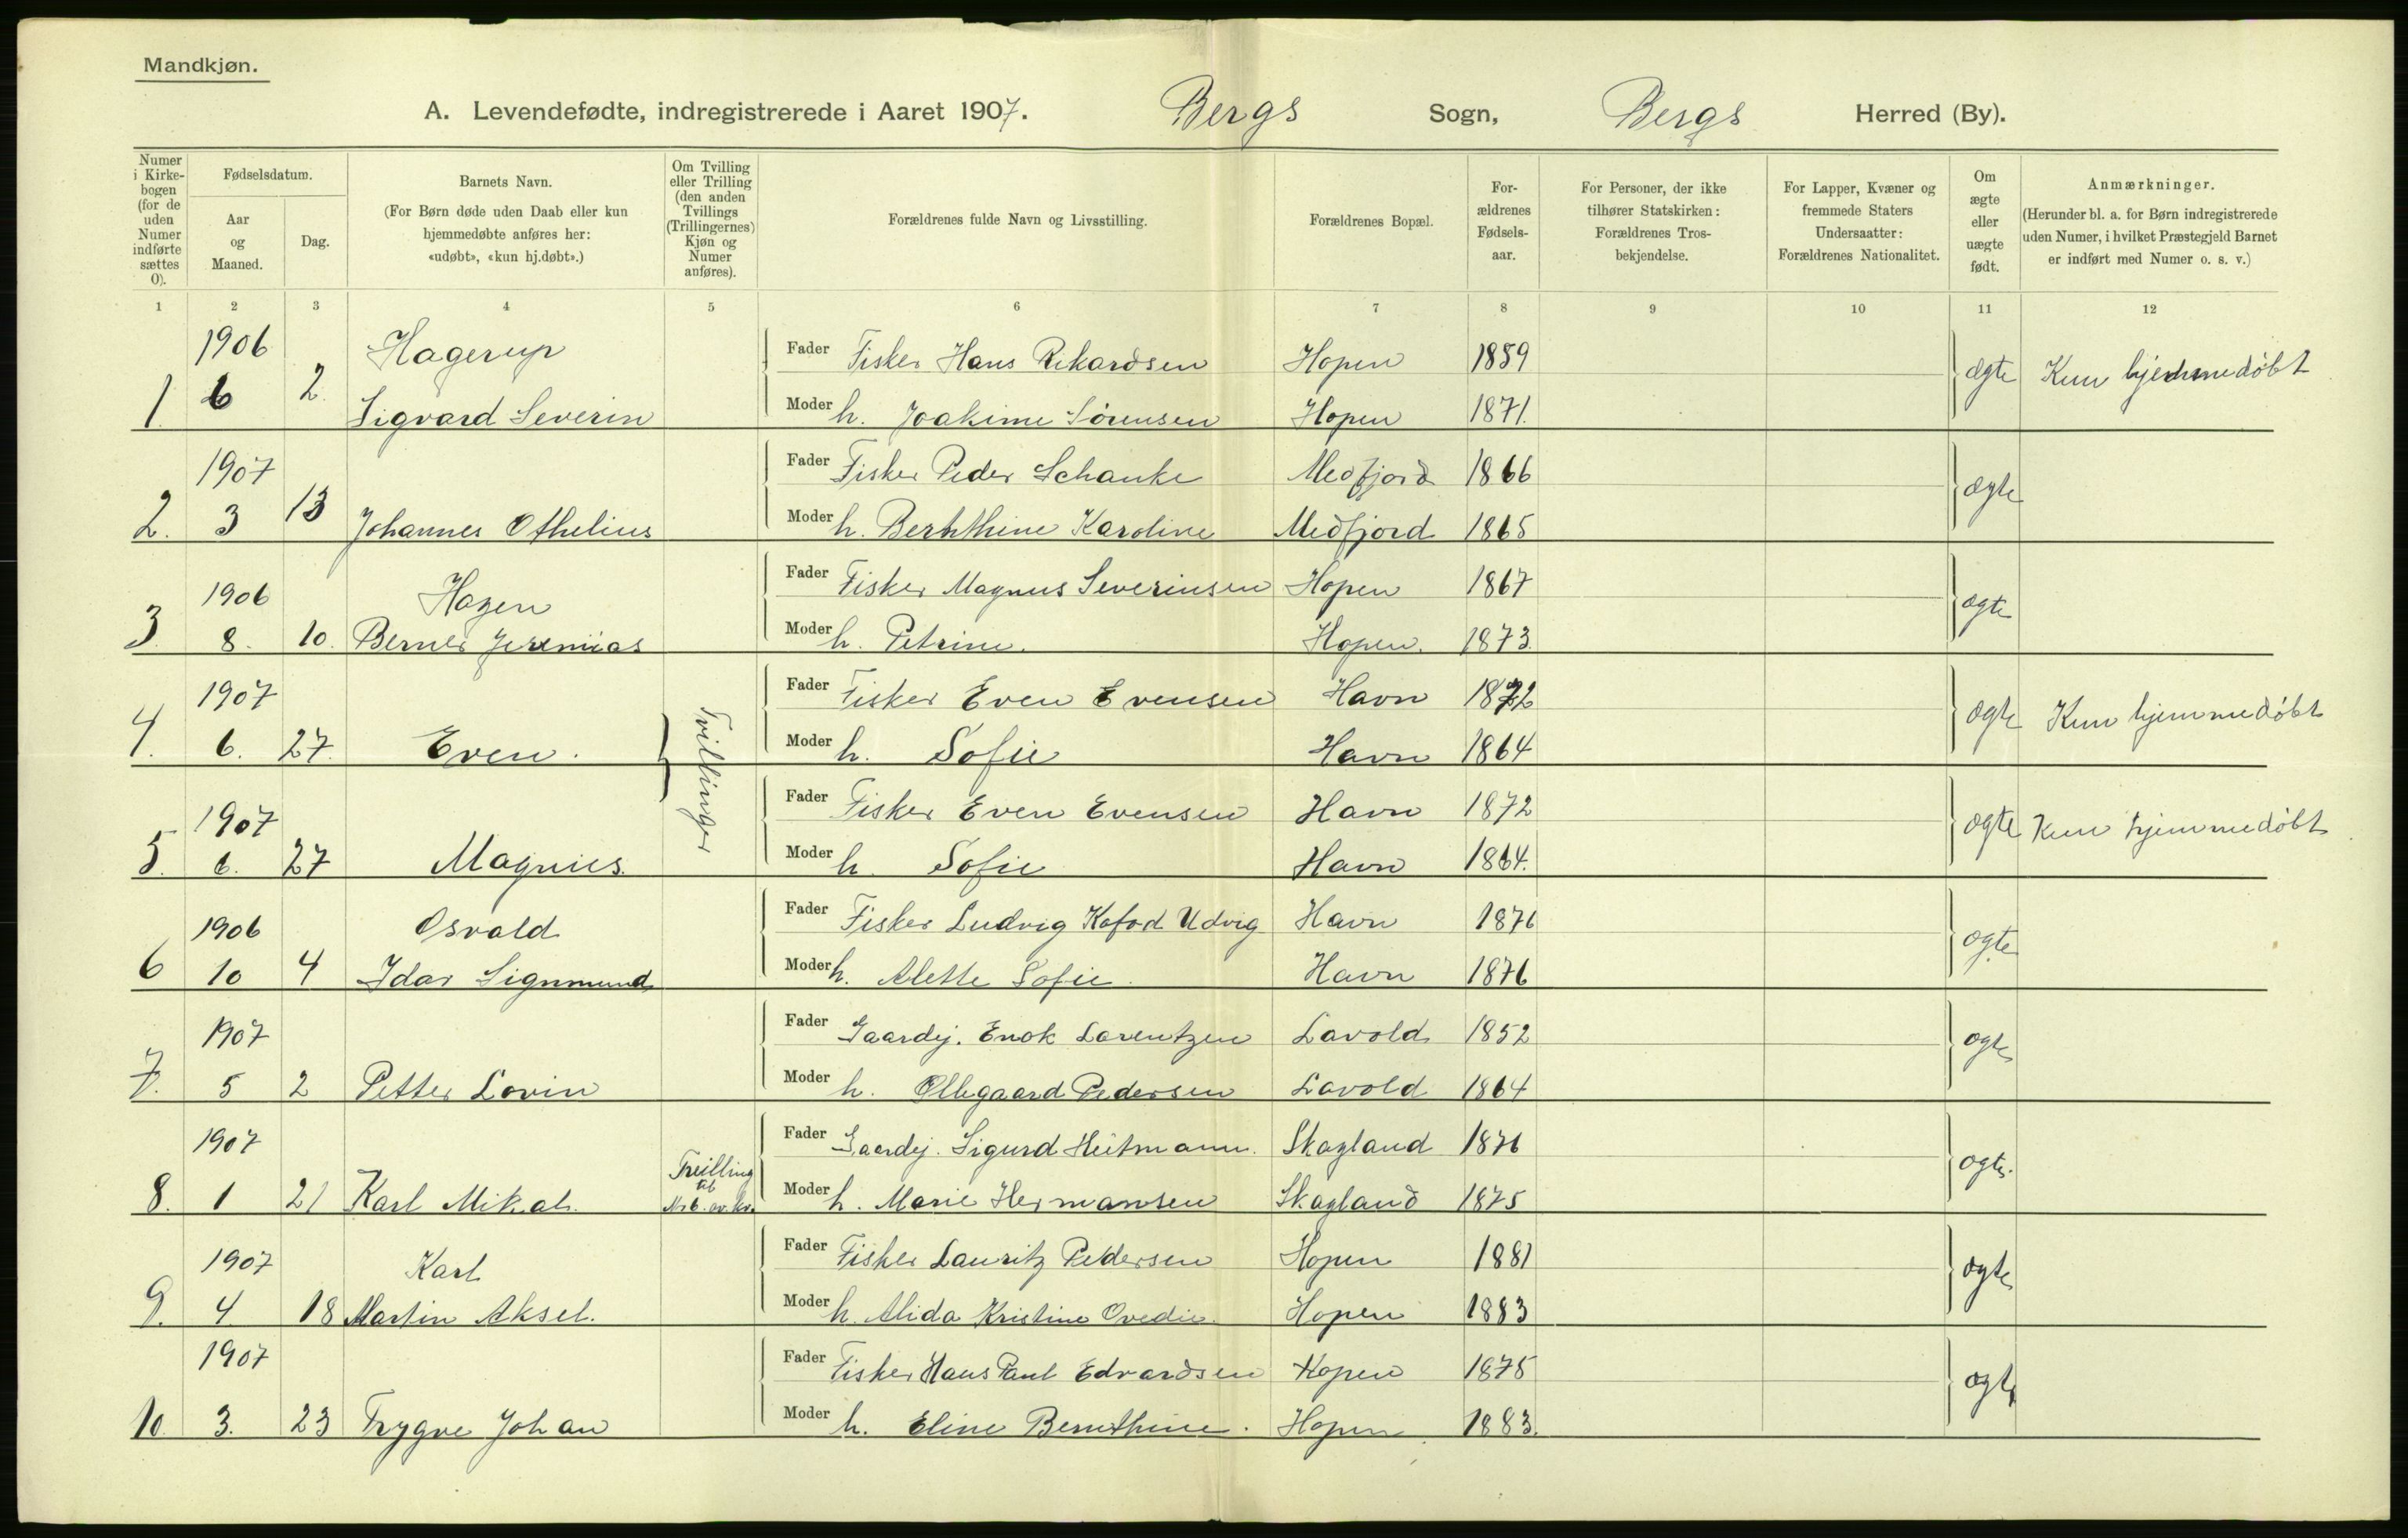 Mandkjøn.
A. Levendefødte, indregistrerede i Aaret 1907. Bergs Sogn, Bergs Herred (By).
Numer i Kirkebogen (for de uden Numer indførte sættes 0).
Fødselsdatum.
Aar og Maaned.
Dag.
Barnets Navn.
(For Børn døde uden Daab eller kun hjemmedøbte anføres her: «udøbt», «kun hj.døbt».)
Om Tvilling eller Trilling (den anden Tvillings (Trillingernes) Kjøn og Numer anføres).
Forældrenes fulde Navn og Livsstilling.
Forældrenes Bopæl.
Forældrenes Fødselsaar.
For Personer, der ikke tilhører Statskirken: Forældrenes Trosbekjendelse.
For Lapper, Kvæner og fremmede Staters Undersaatter: Forældrenes Nationalitet.
Om ægte eller uægte født.
Anmærkninger.
(Herunder bl. a. for Børn indregistrerede uden Numer, i hvilket Præstegjeld Barnet er indført med Numer o. s. v.)
1 2 3 4 5 6 7 8 9 10 11 12
1906 Hagerup Fader Fisker Hans Rikardsen Hopen 1859 ægte Kun hjemmedøbt
1 6 2. Sigvard Severin Moder h. Joakime Sörensen Hopen 1871.
1907 Fader Fisker Peder Schanke Medfjord 1866 ægte
2. 3 13 Johannes Othelius Moder h. Berhthine Karoline Medfjord 1865
1906 Hagen Fader Fisker Magnus Severinsen Hopen 1867 ægte
3. 8. 10. Berner Jeremias Moder h. Petrine. Hopen. 1873.
1907 Fader Fisker Even Evensen Havn 1872 ægte Kun hjemmedøbt
4. 6. 27. Even. Tvillinger Moder h. Sofie Havn 1864
1907 Fader Fisker Even Evensen Havn 1872 ægte Kun hjemmedøbt
5. 6. 27 Magnus. Moder h. Sofie Havn 1864.
1906 Osvald Fader Fisker Ludvig Kofod Udvig Havn 1876 ægte
6 10 4 Idar Sigmund Moder h. Alette Sofie. Havn 1876
1907 Fader Gaardej. Enok Lorentzen Lavold 1852 ægte
7. 5 2 Petter Lovin Moder h. Ollegaard Pedersen Lavold 1864
1907 Fader Gaardej. Sigurd Heitmann. Skagland 1876 ægte.
8. 1 21 Karl Mikal. Tvilling til Nr 6. av. kv. Moder h. Marie Hermansen Skagland 1875
1907 Karl Fader Fisker Lauritz Pedersen Hopen 1881 ægte
9. 4 18 Martin Aksel. Moder h. Alida Kristine Ovedie. Hopen 1883
1907 Fader Fisker Hans Paul Edvardsen Hopen 1875 ægte
10. 3. 23 Trygve Johan Moder h. Eline Bernthine. Hopen 1883.